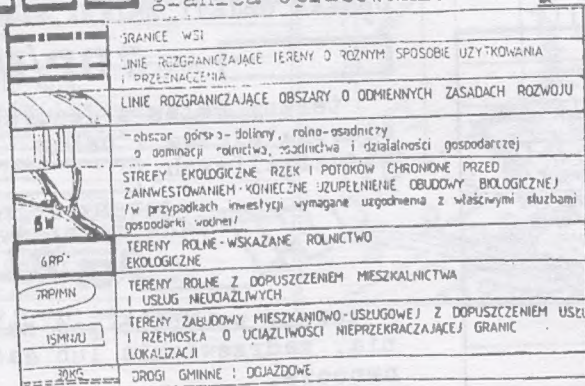 granica opracowania
GRANICE WSI
LINIE ROZGRANICZAJĄCE TERENY O RÓŻNYM SPOSOBIE UŻYTKOWANIA
I PRZEZNACZENIA
LINIE ROZGRANICZAJĄCE OBSZARY O ODMIENNYCH ZASADACH ROZWOJU
-obszar górsko-dolinny, rolno-osadniczy
o dominacji rolnictwa, osadnictwa i działalności gospodarczej
STREFY EKOLOGICZNE RZEK I POTOKÓW CHRONIONE PRZED
ZAINWESTOWANIEM-KONIECZNE UZUPEŁNIENIE OBUDOWY BIOLOGICZNEJ
/w przypadkach inwestycji wymagane uzgodnienia z właściwymi służbami
gospodarki wodnej/
BW
GRP
TERENY ROLNE-WSKAZANE ROLNICTWO
EKOLOGICZNE
7RP/MN
TERENY ROLNE Z DOPUSZCZENIEM MIESZKALNICTWA
I USŁUG NIEUCIĄŻLIWYCH
15MN/U
TERENY ZABUDOWY MIESZKANIOWO-USŁUGOWEJ Z DOPUSZCZENIEM USŁU
I RZEMIOSŁA O UCIĄŻLIWOŚCI NIEPRZEKRACZAJĄCEJ GRANIC
LOKALIZACJI
30KG
DROGI GMINNE I DOJAZDOWE